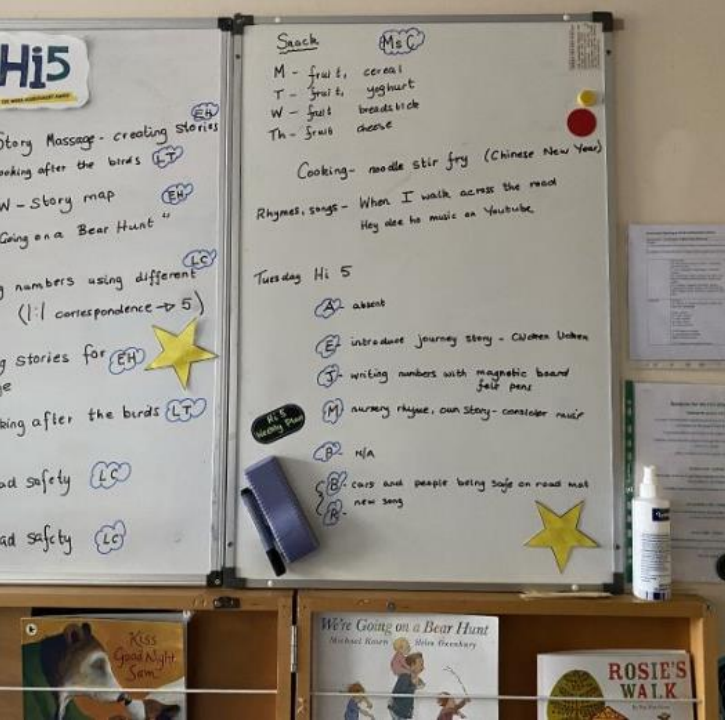 Hi5
EH
Story Massage - creating stories
ooking after the birds LT
W - Story map EH
"Going on a Bear Hunt"
LC
g numbers using different
(1:1 correspondence → 5)
g stories for EH
ge
king after the birds LT
ad safety LC
ad safety LC
Snack MsC
M - fruit, cereal
T - fruit, yoghurt
W - fruit breadstick
Th - fruit cheese
Cooking - noodle stir fry (Chinese New Year)
Rhymes, songs - When I walk across the road
Hey dee ho music on Youtube
Tuesday Hi 5
A - absent
E - introduce journey story -
J - writing numbers with magnetic board
felt pens
M nursery rhyme, own story -
Hi 5
Weekly Plan
B - N/A
B - cars and people being safe on road mat
R - new song
Kiss
Good Night
Sam
We're Going on a Bear Hunt
Michael Rosen Helen Oxenbury
ROSIE'S
WALK